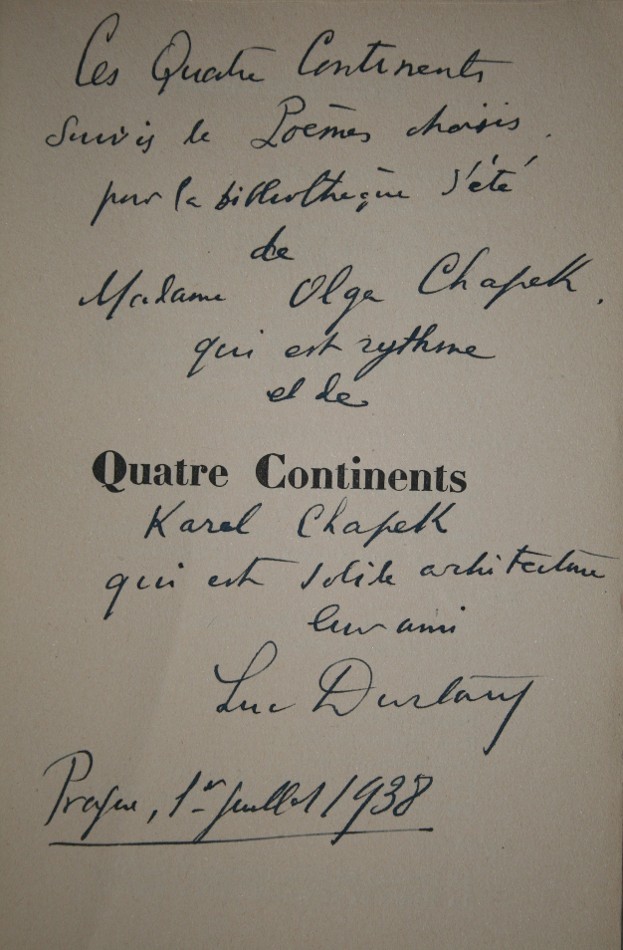 Ces Quatre Continents
suivis de Poèmes choisis
pour la bibliothèque d'été
de
Madame Olga Chapek,
qui est rythme
et de
Quatre Continents
Karel Chapek
qui est solide architecture
leur ami
Luc Durtain
Prague, 1er juillet 1938